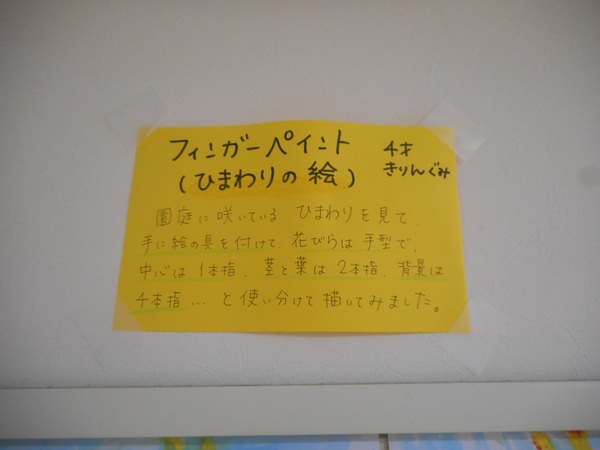 フィンガーペイント 4才
(ひまわりの絵) きりんぐみ
園庭に咲いている ひまわりを見て、
手に絵の具を付けて、花びらは手型で、
中心は1本指、茎と葉は2本指、背景は
4本指… と使い分けて描いてみました。